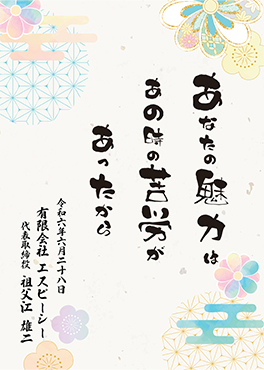 あなたの魅力は
あの時の苦労が
あったから
令和六年六月二十八日
有限会社 エスピーシー
代表取締役 祖父江 雄二